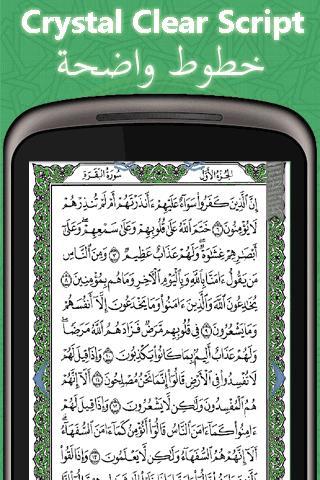 Crystal Clear Script
خطوط واضحة
الجزء الأول سورة البقرة
إِنَّ ٱلَّذِينَ كَفَرُوا۟ سَوَآءٌ عَلَيْهِمْ ءَأَنذَرْتَهُمْ أَمْ لَمْ تُنذِرْهُمْ
لَا يُؤْمِنُونَ ۝٦ خَتَمَ ٱللَّهُ عَلَىٰ قُلُوبِهِمْ وَعَلَىٰ سَمْعِهِمْ ۖ وَعَلَىٰٓ
أَبْصَٰرِهِمْ غِشَٰوَةٌ ۖ وَلَهُمْ عَذَابٌ عَظِيمٌ ۝٧ وَمِنَ ٱلنَّاسِ
مَن يَقُولُ ءَامَنَّا بِٱللَّهِ وَبِٱلْيَوْمِ ٱلْءَاخِرِ وَمَا هُم بِمُؤْمِنِينَ ۝٨
يُخَٰدِعُونَ ٱللَّهَ وَٱلَّذِينَ ءَامَنُوا۟ وَمَا يَخْدَعُونَ إِلَّآ أَنفُسَهُمْ
وَمَا يَشْعُرُونَ ۝٩ فِى قُلُوبِهِم مَّرَضٌ فَزَادَهُمُ ٱللَّهُ مَرَضًا ۖ
وَلَهُمْ عَذَابٌ أَلِيمٌۢ بِمَا كَانُوا۟ يَكْذِبُونَ ۝١٠ وَإِذَا قِيلَ لَهُمْ
لَا تُفْسِدُوا۟ فِى ٱلْأَرْضِ قَالُوٓا۟ إِنَّمَا نَحْنُ مُصْلِحُونَ ۝١١ أَلَآ إِنَّهُمْ
هُمُ ٱلْمُفْسِدُونَ وَلَٰكِن لَّا يَشْعُرُونَ ۝١٢ وَإِذَا قِيلَ لَهُمْ
ءَامِنُوا۟ كَمَآ ءَامَنَ ٱلنَّاسُ قَالُوٓا۟ أَنُؤْمِنُ كَمَآ ءَامَنَ ٱلسُّفَهَآءُ ۗ
أَلَآ إِنَّهُمْ هُمُ ٱلسُّفَهَآءُ وَلَٰكِن لَّا يَعْلَمُونَ ۝١٣ وَإِذَا لَقُوا۟